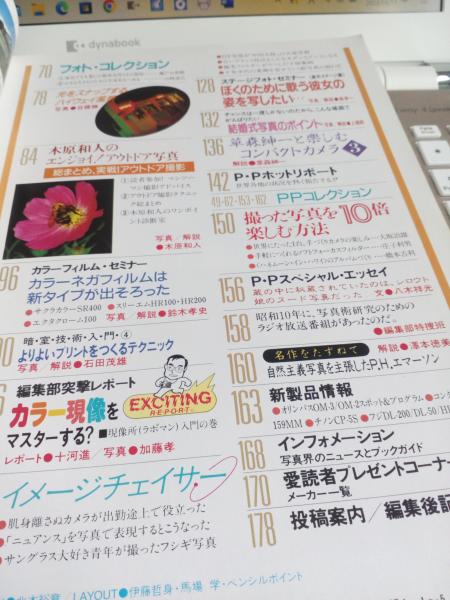 dynabook
70 フォト・コレクション
78 光をスナップする
84 木原和人の
エンジョイ!アウトドア写真
総まとめ、実戦!アウトドア撮影
写真/解説
●木原和人
96 カラーフィルム・セミナー
カラーネガフィルムは
新タイプが出そろった
●サクラカラーSR400 ●スリーエムHR100・HR200
●エクタクローム100 写真/解説●鈴木孝史
暗・室・技・術・入・門・④
よりよいプリントをつくるテクニック
写真/解説●石田茂雄
編集部突撃レポート
カラー現像を
マスターする?
EXCITING
REPORT
■現像所(ラボマン)入門の巻
レポート●十河進/写真●加藤孝
イメージチェイサー
●肌身離さぬカメラが出勤途上で役立った
●「ニュアンス」を写真で表現するとこうなった
●サングラス大好き青年が撮ったフシギ写真
LAYOUT●伊藤哲身・馬場 学・ペンシルポイント
128 ステージフォト・セミナー
ぼくのために歌う彼女の
姿を写したい…
132 結婚式写真のポイント
136 草森紳一と楽しむ
コンパクトカメラ 3
解説●草森紳一
142 P・P・ホットリポート
49・62・153・162 PPコレクション
150 撮った写真を10倍
楽しむ方法
156 P・Pスペシャル・エッセイ
蔵の中に秘蔵されていたのは、シロウト
娘のヌード写真だった 文●八木祥光
158 昭和10年に、写真術研究のための
ラジオ放送番組があったのだ。
●編集部特捜班
160 名作をたずねて
自然主義写真を主張したP.H.エマーソン
163 新製品情報
●オリンパスOM-3/OM-2スポット&プログラム
159MM ●チノンCP-5S ●フジDL-200/DL-50
168 インフォメーション
写真界のニュースとブックガイド
170 愛読者プレゼントコーナー
メーカー一覧
178 投稿案内/編集後記